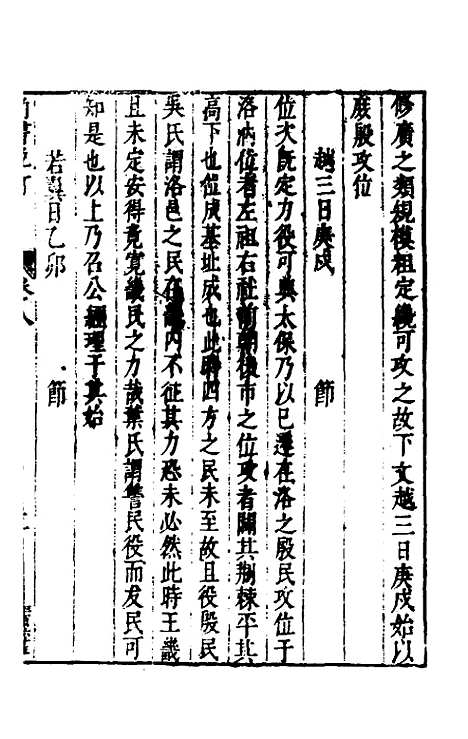 修廣之類規模粗定纔可攻之故下文越三日庚戌始以
庶殷攻位
越三日庚戌　節
位次既定力役可興太保乃以已遷在洛之殷民攻位于
洛汭位者左祖右社前朝後市之位攻者闢其荆棘平其
高下也位成基址成也此時四方之民未至故且役殷民
吳氏謂洛邑之民在畿內不征其力恐未必然此時王畿
且未定安得竟寛畿民之力哉葉氏謂讐民役而友民可
知是也以上乃召公經理于其始
若翼日乙卯　節
卷八